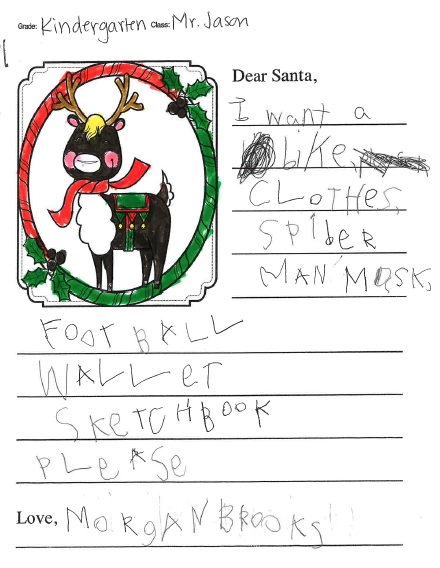 Grade: Kindergarten Class: Mr. Jason
Dear Santa,
I want a
bike,
CLOTHES,
SPIDER
MAN MASK,
FOOTBALL
WALLET
SKETCHBOOK
PLEASE
Love, MORGAN BROOKS